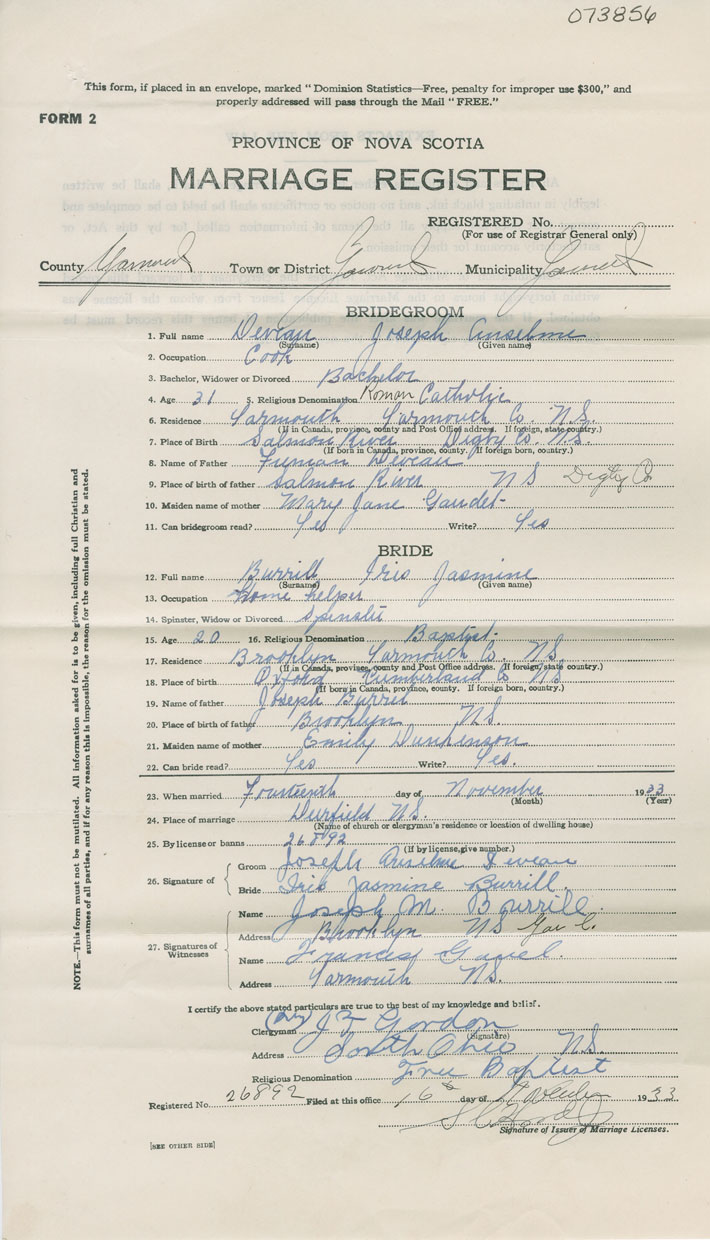 073856
This form, if placed in an envelope, marked "Dominion Statistics—Free, penalty for improper use $300," and
properly addressed will pass through the Mail "FREE."
FORM 2
PROVINCE OF NOVA SCOTIA
MARRIAGE REGISTER
REGISTERED No.
(For use of Registrar General only)
County Yarmouth Town or District Municipality
BRIDEGROOM
1. Full name Deveau Joseph Anselme
(Surname) (Given name)
2. Occupation Cook
3. Bachelor, Widower or Divorced Bachelor
4. Age 31 5. Religious Denomination Roman Catholic
6. Residence Yarmouth Yarmouth Co. N.S.
(If in Canada, province, county and Post Office address. If foreign, state country.)
7. Place of Birth Salmon River Digby Co. N.S.
(If born in Canada, province, county. If foreign born, country.)
8. Name of Father Deveau
9. Place of birth of father Salmon River N S Digby Co
10. Maiden name of mother Mary Jane Gaudet
11. Can bridegroom read? Yes Write? Yes
BRIDE
12. Full name Burrill Iris Jasmine
(Surname) (Given name)
13. Occupation Home helper
14. Spinster, Widow or Divorced Spinster
15. Age 20 16. Religious Denomination Baptist.
17. Residence Brooklyn Yarmouth Co. N.S.
(If in Canada, province, county and Post Office address. If foreign, state country.)
18. Place of birth Oxford Cumberland Co N S
(If born in Canada, province, county. If foreign born, country.)
19. Name of father Joseph Burril
20. Place of birth of father Brooklyn N.S.
21. Maiden name of mother Emily
22. Can bride read? Yes Write? Yes.
23. When married Fourteenth day of November 1933
(Month) (Year)
24. Place of marriage N.S.
(Name of church or clergyman's residence or location of dwelling house)
25. By license or banns 26892
(If by license, give number.)
26. Signature of Groom Joseph Anselme Deveau
Bride Iris Jasmine Burrill
27. Signatures of Witnesses
Name Joseph M. Burrill
Address Brooklyn N S Yar C.
Name Francis
Address Yarmouth N.S.
I certify the above stated particulars are true to the best of my knowledge and belief.
Clergyman (Rev) J. F Gordon
(Signature)
Address South Ohio N.S
Religious Denomination Free Baptist
Registered No. 26892 Filed at this office 16 day of November 1933
Signature of Issuer of Marriage Licenses.
[SEE OTHER SIDE]
NOTE.—This form must not be mutilated. All information asked for is to be given, including full Christian and
surnames of all parties, and if for any reason this is impossible, the reason for the omission must be stated.